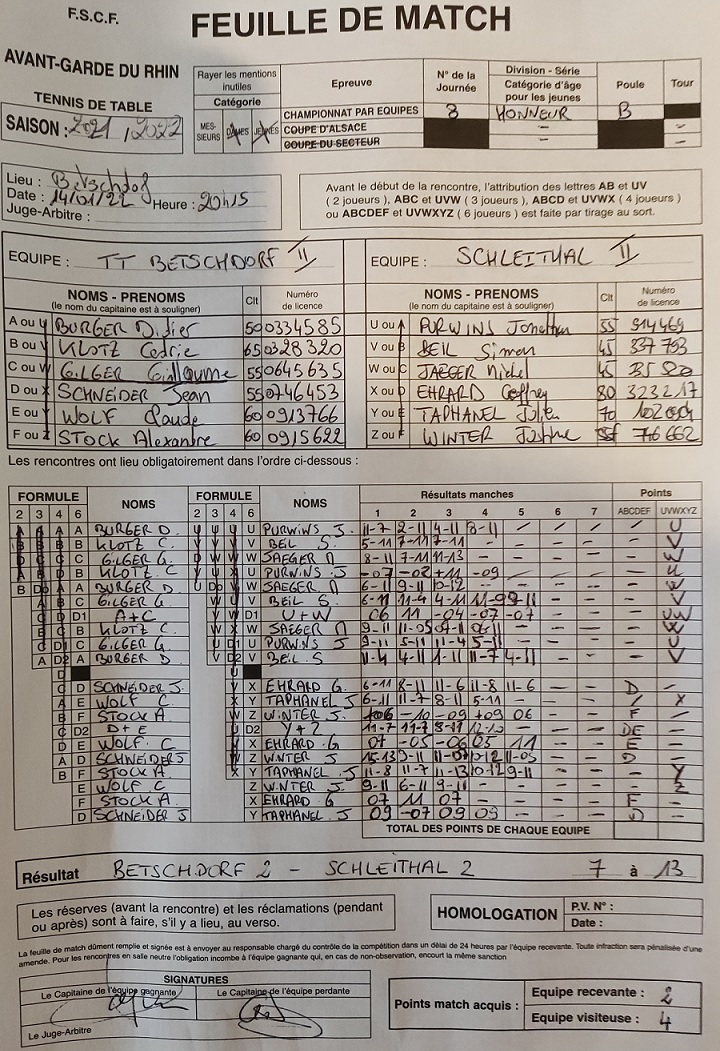 F.S.C.F.
FEUILLE DE MATCH
AVANT-GARDE DU RHIN
TENNIS DE TABLE
SAISON : 2021 / 2022
Rayer les mentions inutiles
Catégorie
MES-SIEURS DAMES JEUNES
Epreuve
N° de la Journée
Division - Série
Catégorie d'âge pour les jeunes
Poule
Tour
CHAMPIONNAT PAR EQUIPES 8 HONNEUR B
COUPE D'ALSACE - -
COUPE DU SECTEUR - -
Lieu : Betschdorf
Date : 14/01/22 Heure : 20h15
Juge-Arbitre :
Avant le début de la rencontre, l'attribution des lettres AB et UV
( 2 joueurs ), ABC et UVW ( 3 joueurs ), ABCD et UVWX ( 4 joueurs )
ou ABCDEF et UVWXYZ ( 6 joueurs ) est faite par tirage au sort.
EQUIPE : TT BETSCHDORF II
EQUIPE : SCHLEITHAL II
NOMS - PRENOMS Clt Numéro
(le nom du capitaine est à souligner) de licence
NOMS - PRENOMS Clt Numéro
(le nom du capitaine est à souligner) de licence
A ou U BURGER Didier 50 0334585 U ou A PURWINS Jonathan 55 914469
B ou V KLOTZ Cedric 65 0328320 V ou B BEIL Simon 45 337793
C ou W GILGER Guillaume 55 0645635 W ou C JAEGER Michel 45
D ou X SCHNEIDER Jean 55 0746453 X ou D EHRARD Geoffrey 80 323217
E ou Y WOLF Claude 60 0913766 Y ou E TAPHANEL Julien 70
F ou Z STOCK Alexandre 60 0915622 Z ou F WINTER Justine 746662
Les rencontres ont lieu obligatoirement dans l'ordre ci-dessous :
FORMULE NOMS FORMULE NOMS Résultats manches Points
2 3 4 6 2 3 4 6 1 2 3 4 5 6 7 ABCDEF UVWXYZ
A BURGER D. U PURWINS J. 11-7 2-11 4-11 8-11 U
B KLOTZ C. V BEIL S. 5-11 7-11 7-11 - - - - - V
C GILGER G. W JAEGER M 8-11 7-11 11-13 - - - - - W
B KLOTZ C. U PURWINS J -07 -02 +11 -09 U
A BURGER D. W JAEGER M 6-11 9-11 10-12 - - - - - W
C GILGER G. V BEIL S. 6-11 11-4 4-11 - - - V
D1 A+C D1 U+W 06 11 -04 -07 -07 - - - UW
B KLOTZ C. W JAEGER M 9-11 11-05 - - - W
C GILGER G. U PURWINS J 9-11 5-11 11-4 5-11 - - - - U
A BURGER D. V BEIL S 11-4 4-11 1-11 11-7 4-11 - - - V
D SCHNEIDER J. X EHRARD G. 6-11 8-11 11-6 11-8 11-6 - - D -
E WOLF C Y TAPHANEL J 6-11 11-7 8-11 5-11 - - - X
F STOCK A Z WINTER J. -10 -09 +09 06 - - F
D2 D+E D2 Y+Z 11-7 11-7 8-11 12-10 - - - DE -
E WOLF. C X EHRARD. G 07 -05 -06 03 11 - - E -
D SCHNEIDER J Z WINTER J 15-13 10-12 11-05 - - D -
F STOCK A. Y TAPHANEL J 11-8 11-7 11-13 10-12 9-11 - - - Y
E WOLF C Z WINTER J 9-11 6-11 9-11 - - - - - Z
F STOCK A. X EHRARD G 07 11 07 - - - - F -
D SCHNEIDER J Y TAPHANEL J 09 -07 09 09 - - - D -
TOTAL DES POINTS DE CHAQUE EQUIPE
Résultat BETSCHDORF 2 - SCHLEITHAL 2 7 à 13
Les réserves (avant la rencontre) et les réclamations (pendant
ou après) sont à faire, s'il y a lieu, au verso.
HOMOLOGATION P.V. N° :
Date :
La feuille de match dûment remplie et signée est à envoyer au responsable chargé du contrôle de la compétition dans un délai de 24 heures par l'équipe recevante. Toute infraction sera pénalisée d'une
amende. Pour les rencontres en salle neutre l'obligation incombe à l'équipe gagnante qui, en cas de non-observation, encourt la même sanction
SIGNATURES
Le Capitaine de l'équipe gagnante Le Capitaine de l'équipe perdante
Le Juge-Arbitre
Points match acquis :
Equipe recevante : 2
Equipe visiteuse : 4